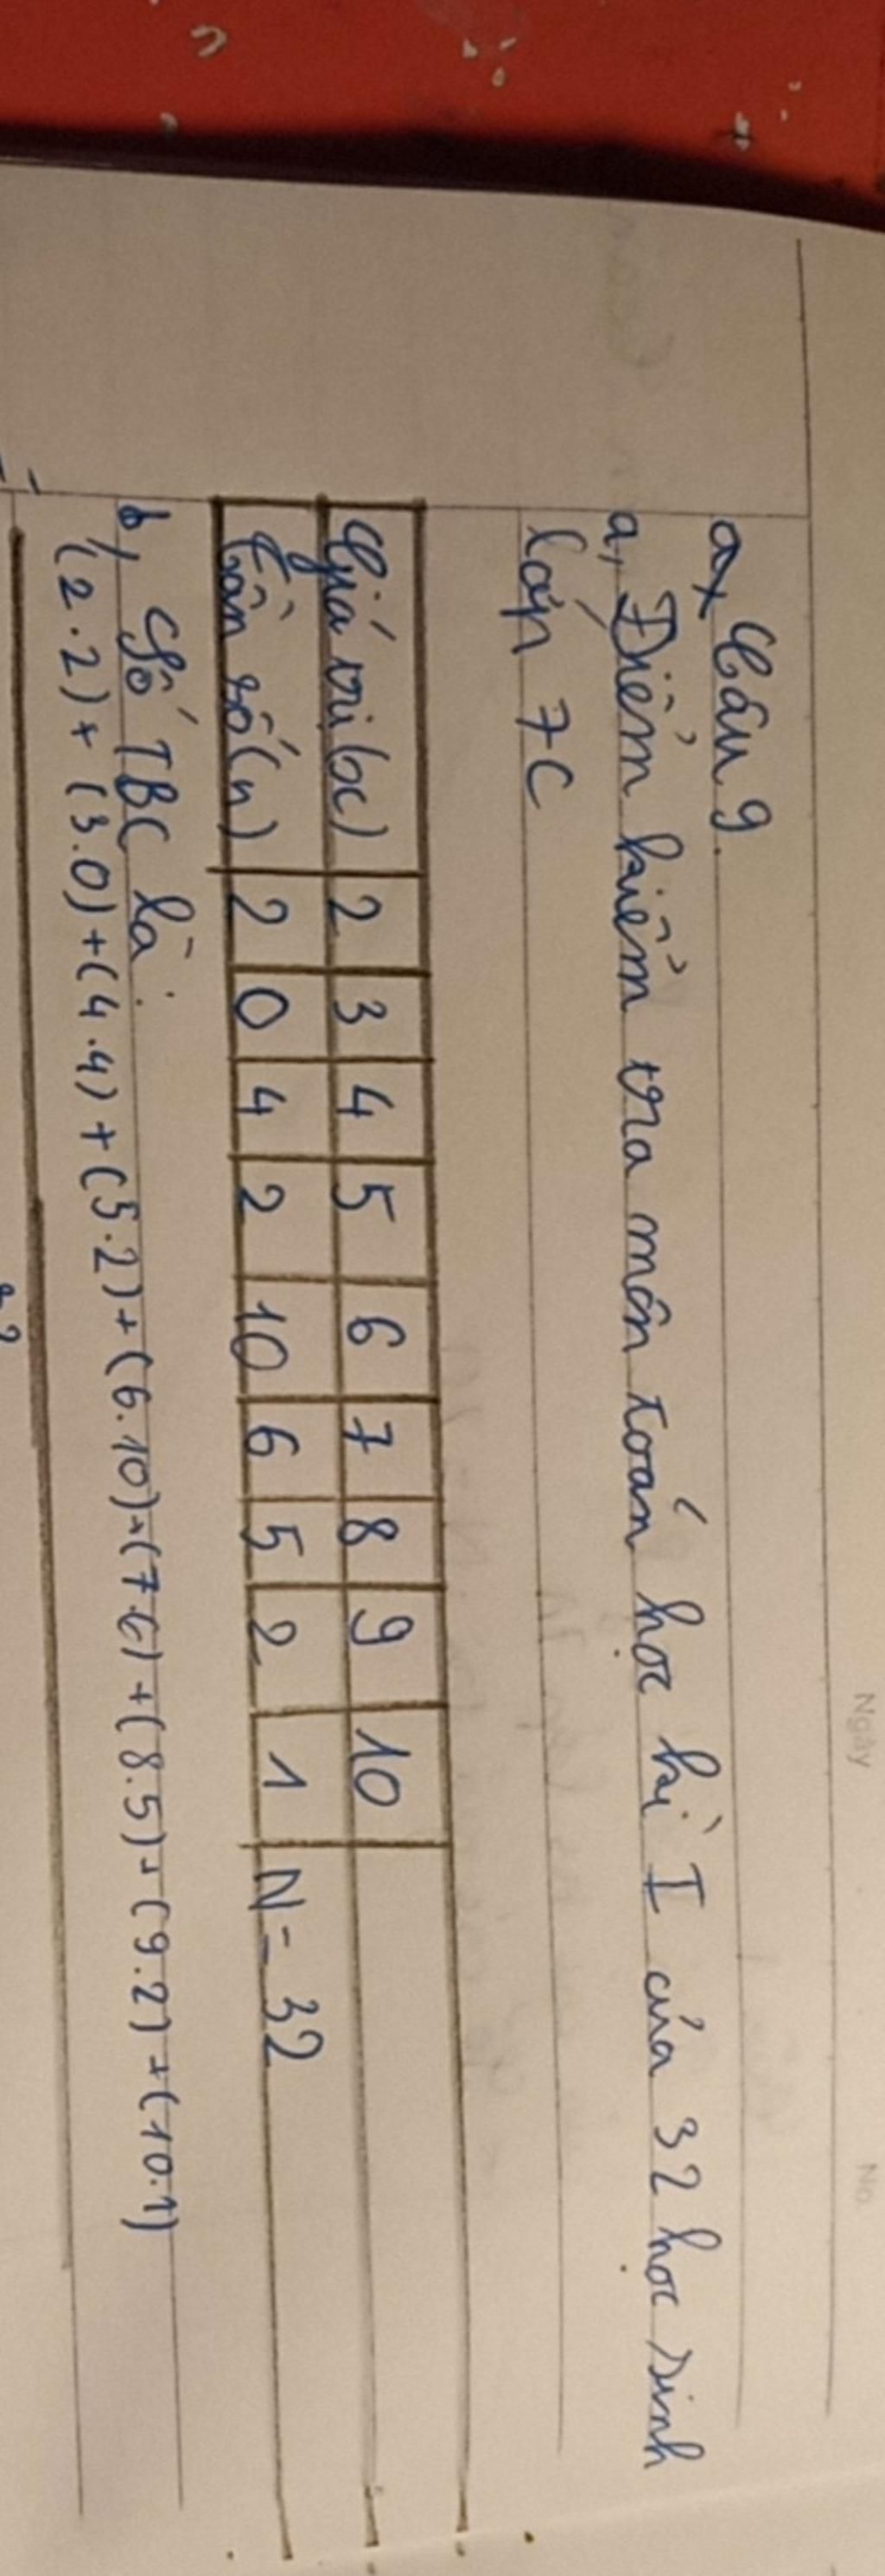 Câu 9.
a, Điểm kiểm tra môn toán học kì I của 32 học sinh
lớp 7C
Giá trị (x) 2 3 4 5 6 7 8 9 10
Tần số (n) 2 0 4 2 10 6 5 2 1 N = 32
b, Số TBC là:
(2.2) + (3.0) + (4.4) + (5.2) + (6.10) + (7.6) + (8.5) + (9.2) + (10.1)
Ngày
No.